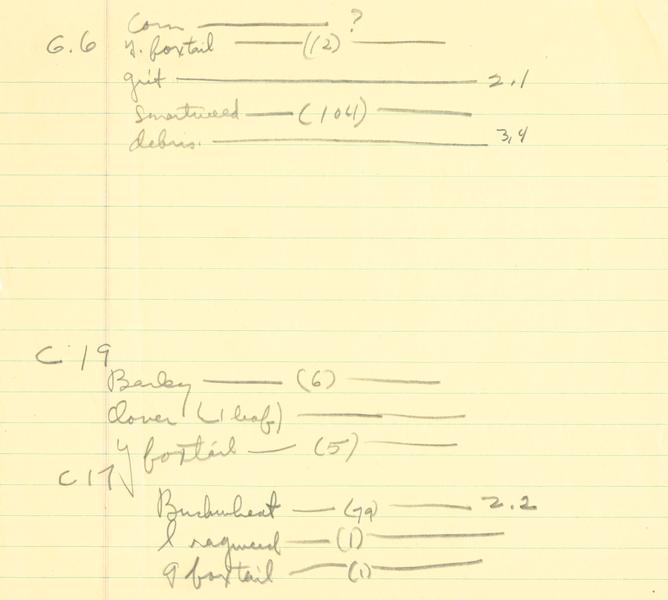 Corn ?
G.6 Y. foxtail (12)
grit 2.1
Smartweed (104)
debris. 3.4
C 19
Barley (6)
Clover (1 leaf)
Y foxtail (5)
C 17
Buckwheat (79) 2.2
l ragweed (1)
g foxtail (1)